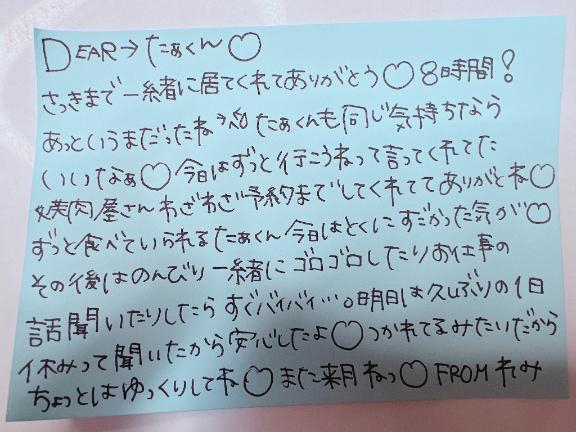 DEAR→たぁくん♡
さっきまで一緒に居てくれてありがとう♡8時間!
あっというまだったね たぁくんも同じ気持ちなら
いいなぁ♡今日はずっと行こうねって言ってくれてた
焼肉屋さんわざわざ予約までしてくれててありがとね♡
ずっと食べていられるたぁくん今日はとくにすごかった気が♡
その後はのんびり一緒にゴロゴロしたりお仕事の
話聞いたりしたらすぐバイバイ…。明日は久しぶりの1日
休みって聞いたから安心したよ♡つかれてるみたいだから
ちょっとはゆっくりしてね♡また来月ねっ♡FROMれみ